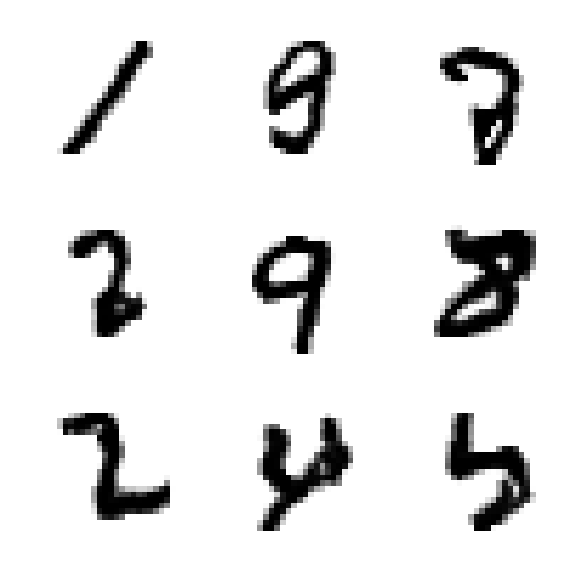 1 9 2
2 9 8
2 4 5